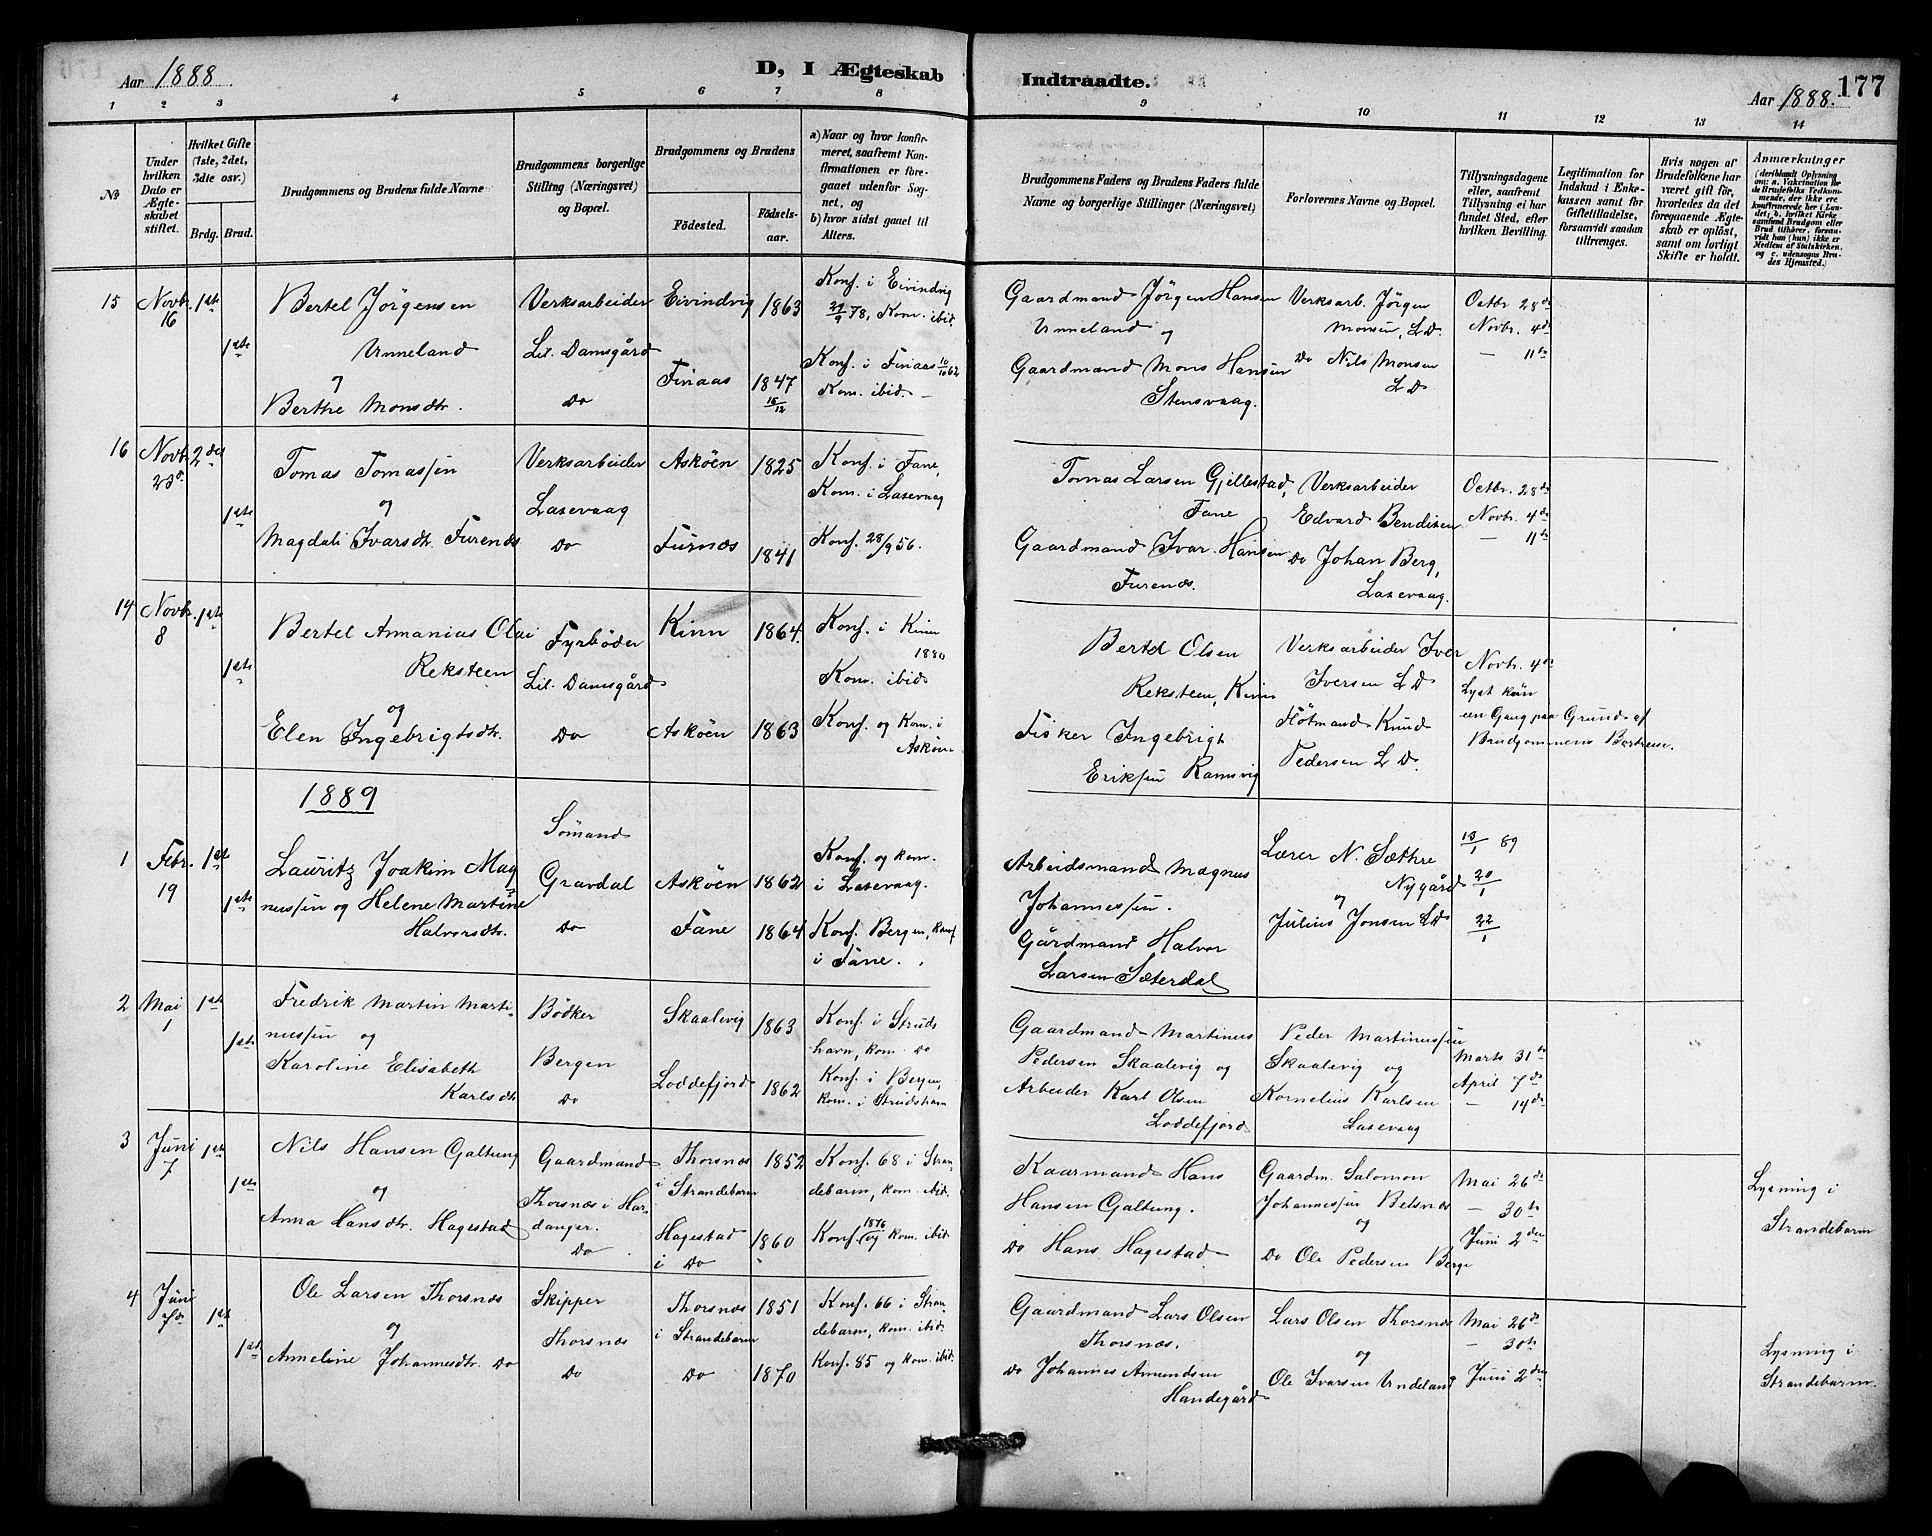 Aar 1888.
D, I Ægteskab
Indtraadte.
177
Aar 1888.
1 2 3 4 5 6 7 8 9 10 11 12 13 14
№
Under hvilken Dato er Ægteskabet stiftet.
Hvilket Gifte (1ste, 2det, 3die osv.)
Brdg. Brud.
Brudgommens og Brudens fulde Navne
Brudgommens borgerlige Stilling (Næringsvei) og Bopæl.
Brudgommens og Brudens
Födested.
Födselsaar.
a) Naar og hvor konfirmeret, saafremt Konfirmationen er foregaaet udenfor Sognet, og
b) hvor sidst gaaet til Alters.
Brudgommens Faders og Brudens Faders fulde Navne og borgerlige Stillinger (Næringsvei)
Forlovernes Navne og Bopæl.
Tillysningsdagene eller, saafremt Tillysning ei har fundet Sted, efter hvilken Bevilling.
Legitimation for Indskud i Enkekassen samt for Giftetilladelse, forsaavidt saadan tiltrænges.
Hvis nogen af Brudefolkene har været gift för, hvorledes da det foregaaende Ægteskab er oplöst, samt om lovligt Skifte er holdt.
Anmærkninger (deriblandt Oplysning om: a. Vakcination for de Brudefolks Vedkommende, der ikke ere konfirmerede her i Landet; b. hvilket Kirkesamfund Brudgom eller Brud tilhörer, forsaavidt han (hun) ikke er Medlem af Statskirken, og c. udensogns Brudes Hjemsted.)
15 Novbr. 16 1ste 1ste
Bertel Jörgensen
Unneland
og
Berthe Monsdtr.
Verksarbeider
Lil. Damsgård
Do
Eivindvig 1863
Finaas 1847 15/12
Konf. i Eivindvig
29/9 78, Kom. ibid.
Konf. i Finaas 10/10 62
Kom. ibid.
Gaardmand Jörgen Hansen
Unneland og
Gaardmand Mons Hansen
Stensvaag.
Verksarb. Jörgen
Monsen, L D.
Do Nils Monsen
L D
Octbr. 28de
Novbr. 4de
— 11te
16 Novbr. 23de 2det 1ste
Tomas Tomassen
og
Magdali Ivarsdtr. Furenes
Verksarbeider
Laxevaag
Do
Asköen 1825
Furnæs 1841
Konf. i Fane,
Kom. i Laxevaag
Konf. 28/9 56.
Tomas Larsen Gjellestad,
Fane
Gaardmand Ivar Hansen
Furenæs.
Verksarbeider
Edvard Bendixen
Do Johan Berg,
Laxevaag.
Octbr. 28de
Novbr. 4de
— 11te
14 Novbr. 8 1ste 1ste
Bertel Annanias Olai
Reksteen
og
Elen Ingebrigtsdtr.
Fyrböder
Lil. Damsgård
Do
Kinn 1864.
Asköen 1863
Konf. i Kinn
1880
Kom. ibid
Konf. og Kom. i
Asköen
Bertel Olsen
Reksteen, Kinn
Fisker Ingebrigt
Eriksen Ramsvig
Verksarbeider Iver
Iversen L D
Flötmand Knud
Pedersen L D.
Novbr. 4de
Lyst kun
een Gang paa Grund af
Brudgommens Bortreise.
1889
1 Febr. 19 1ste 1ste
Lauritz Joakim Mag-
nussen og Helene Martine
Halvorsdtr.
Sömand
Gravdal
Do
Asköen 1862
Fane 1864
Konf. og kom.
i Laxevaag.
Konf. Bergen, kom
i Fane.
Arbeidsmand Magnus
Johannessen.
Gårdmand Halvor
Larsen Sæterdal
Lærer N. Sæthre
Nygård
og
Julius Jonsen L D
13/1 89
20/1
22/1
2 Mai 1 1ste 1ste
Fredrik Martin Marti-
nussen og
Karoline Elisabeth
Karlsdtr
Bödker
Bergen
Do
Skaalevig 1863
Loddefjord 1862
Konf. i Struds
havn, kom. Do
Konf. i Bergen,
kom. i Strudshavn
Gaardmand Martinus
Pedersen Skaalevig og
Arbeider Karl Olsen
Loddefjord
Peder Martinussen
Skaalevig og
Kornelius Karlsen
Laxevaag
Marts 31te
April 7de
— 14de
3 Juni 7 1ste 1ste
Nils Hansen Galtung
og
Anna Hansdtr. Hagestad
Gaardmand
Thorsnæs i Har-
danger.
Do
Thorsnæs 1852
i Strandebarm
Hagestad 1860
i Do
Konf. 68 i Stran-
debarm, kom. ibid.
Konf. 1876 og kom. ibid.
Kaarmand Hans
Hansen Galtung.
Do Hans Hagestad
Gaardm. Salomon
Johannessen Belsnæs
og
Do Ole Pedersen Berge
Mai 26de
— 30te
Juni 2den
Lysning i
Strandebarm
4 Juni 7de 1ste 1ste
Ole Larsen Thorsnæs
og
Anneline Johannesdtr. Do
Skipper
Thorsnæs
Do
Thorsnæs 1851
i Strandebarm
Do 1870
Konf. 66 i Stran-
debarm, kom. ibid.
Konf. 85 og kom. ibid.
Gaardmand Lars Olsen
Thorsnæs.
Do Johannes Amundsen
Handegård
Lars Olsen Thorsnæs
og
Ole Ivarsen Undeland
Mai 26de
— 30te
Juni 2den
Lysning i
Strandebarm.